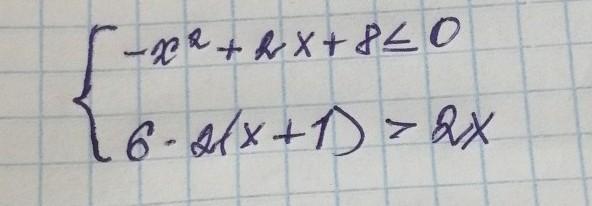 -x² + 2x + 8 ≤ 0
6 - 2(x + 1) > 2x